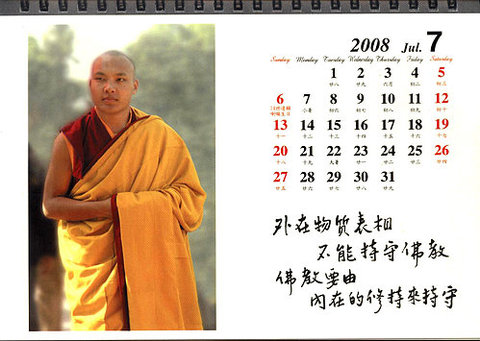 2008 Jul. 7
Sunday Monday Tuesday Wednesday Thursday Friday Saturday
1 2 3 4 5
廿八 廿九 六月 初二 初三
6 7 8 9 10 11 12
小暑 初六 初七 初八 初九 初十
13 14 15 16 17 18 19
十一 十二 十三 十四 十五 十六 十七
20 21 22 23 24 25 26
十八 十九 大暑 廿一 廿二 廿三 廿四
27 28 29 30 31
廿五 廿六 廿七 廿八 廿九
外在物質表相
不能持守佛教
佛教要由
內在的修持來持守